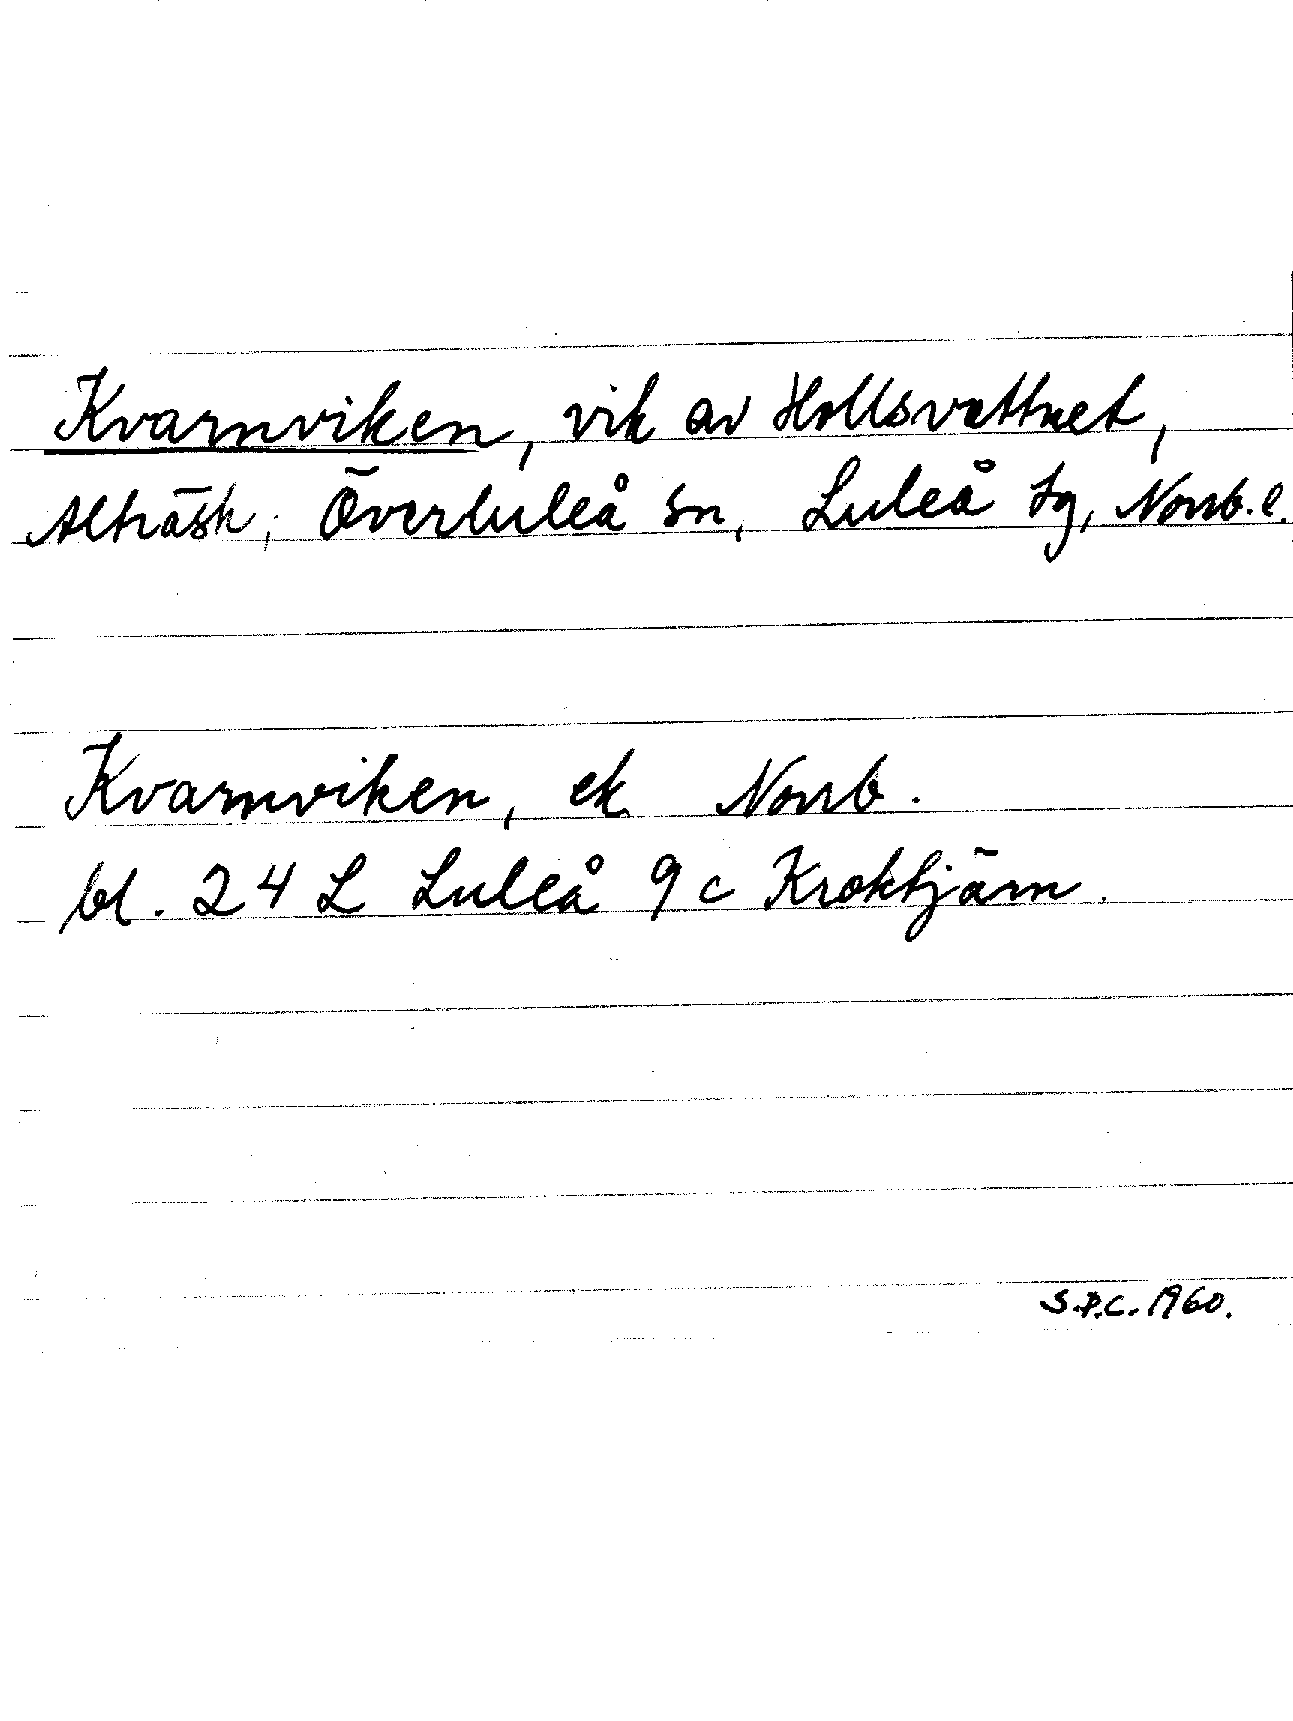 Kvarnviken, vik av Hollsvattnet,
Alträsk, Överluleå sn, Luleå tg, Norrb. l.
Kvarnviken, ek. Norrb.
bl. 24 L Luleå 9 c Kroktjärn.
S.P.C. 1960.